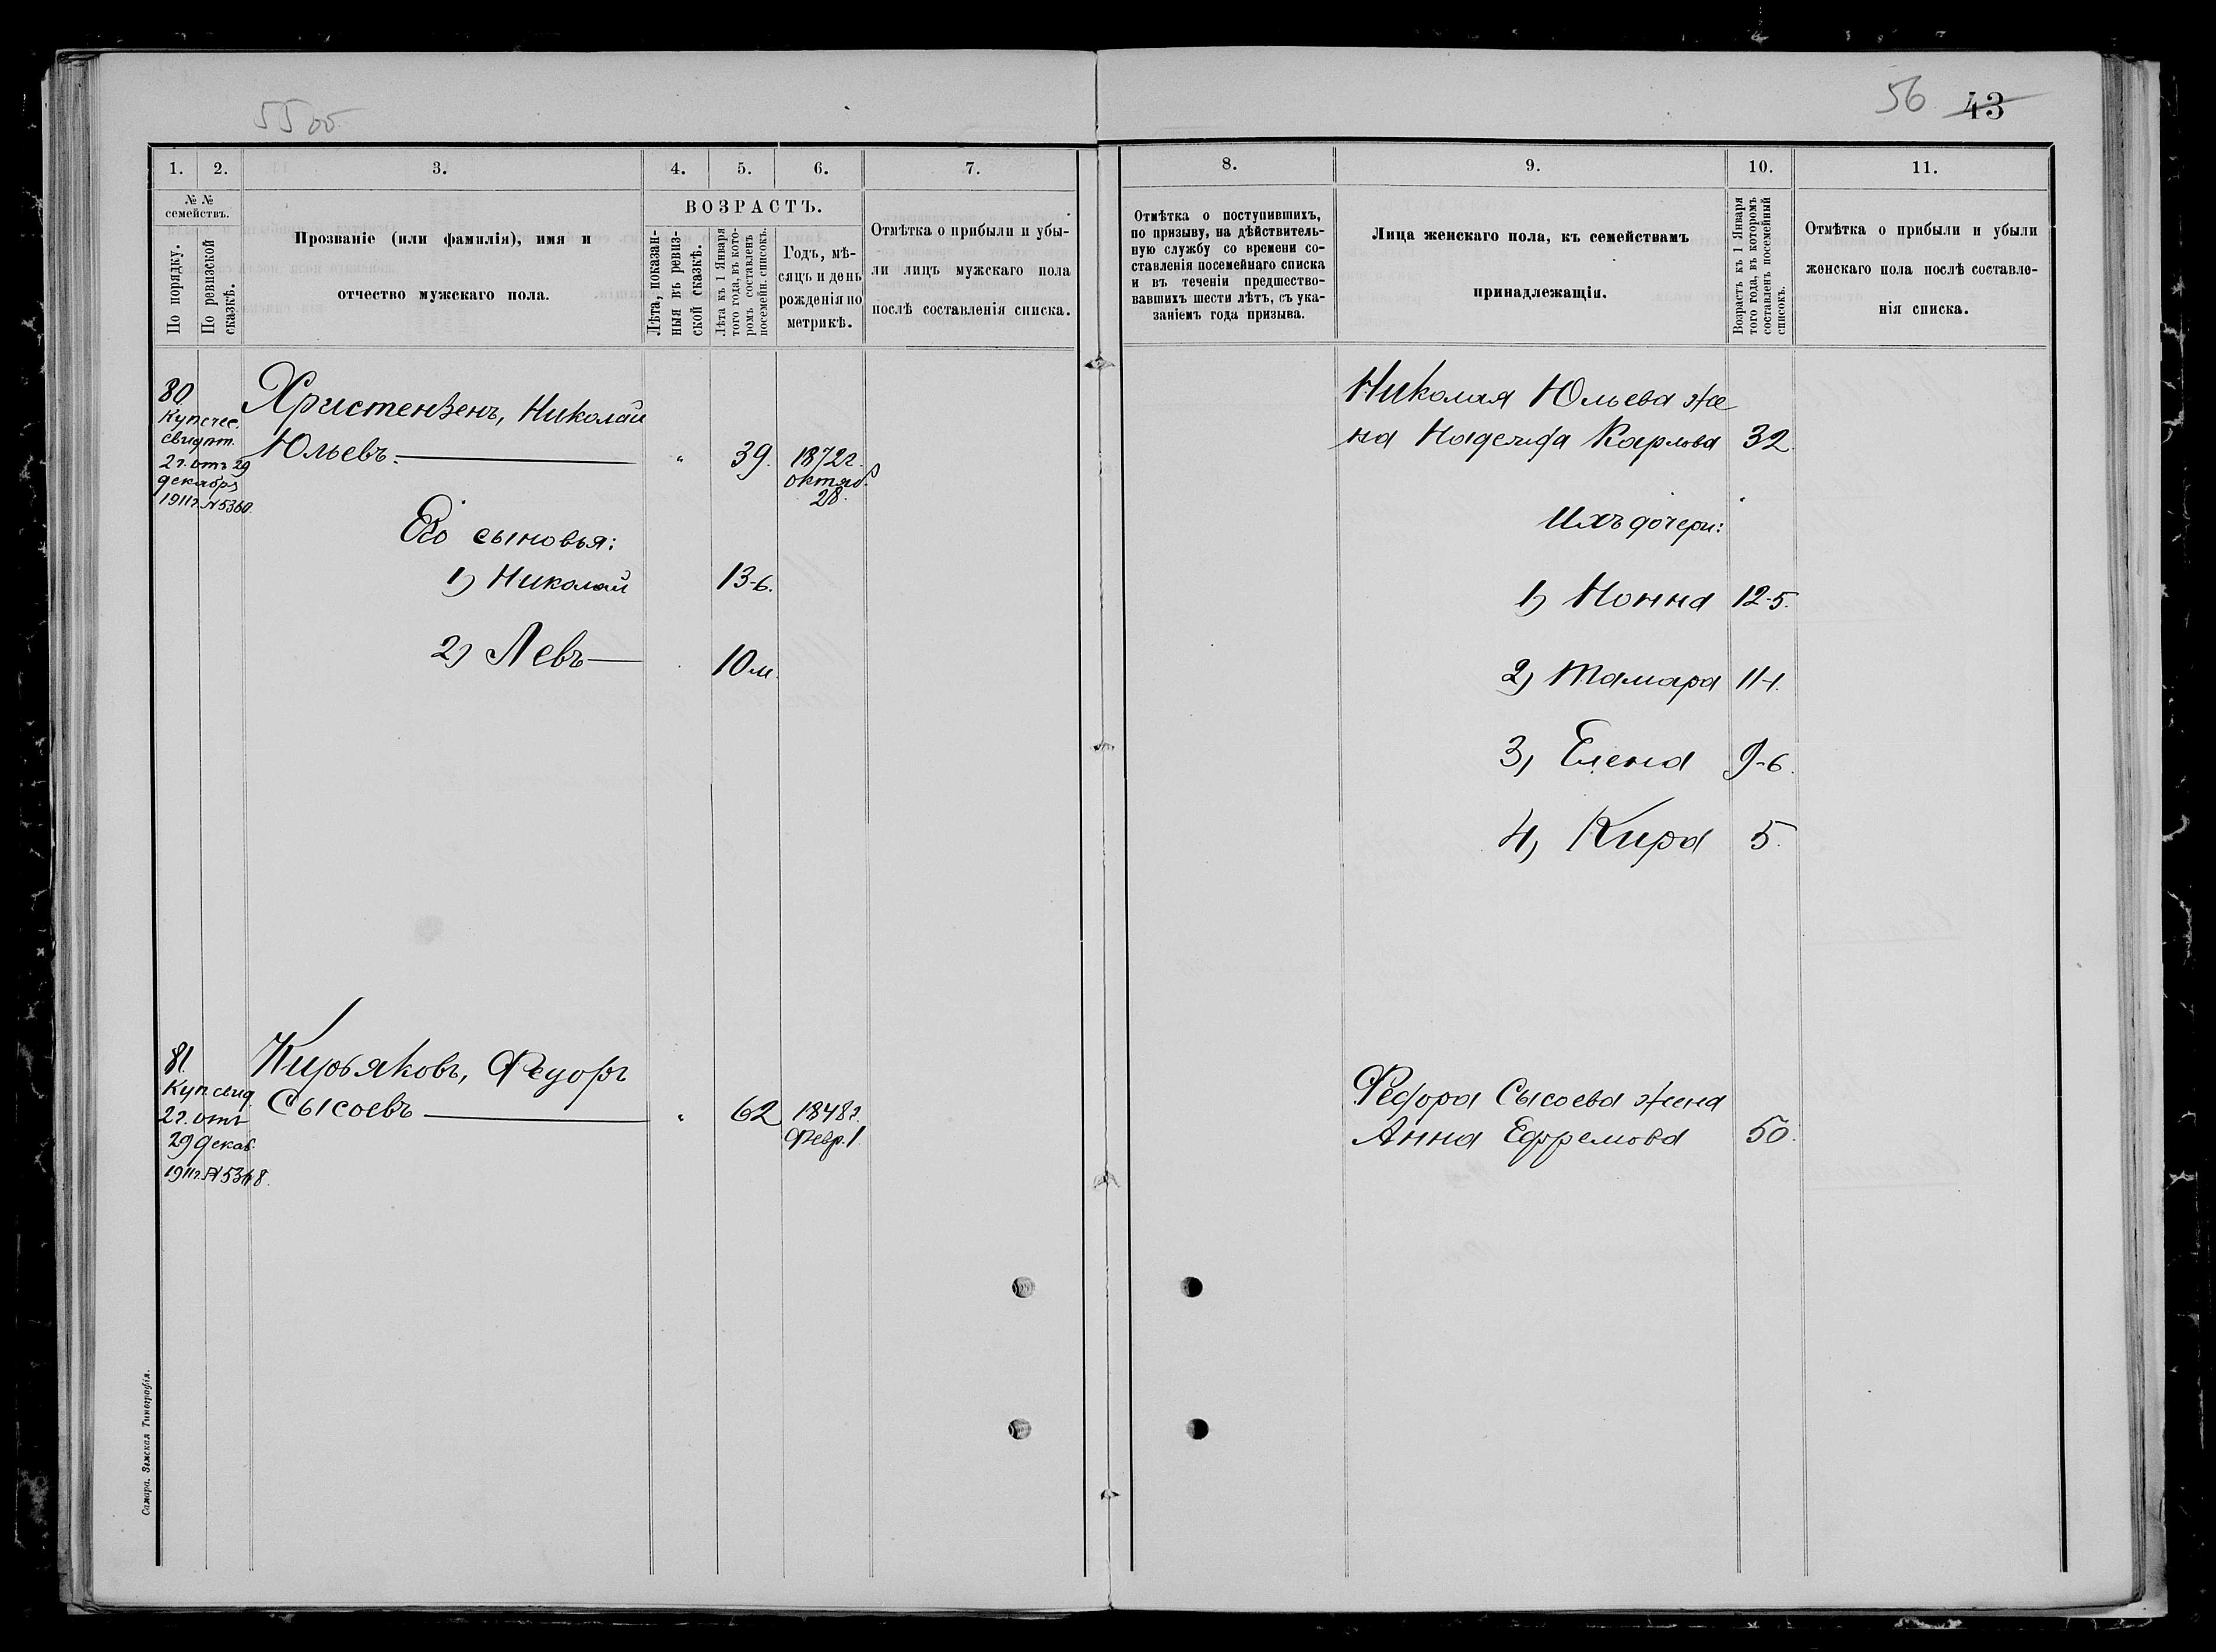 55 об
1. 2. 3. 4. 5. 6. 7.
№ № семействъ.
По порядку.
По ревизской сказкѣ.
Прозваніе (или фамилія), имя и
отчество мужскаго пола.
ВОЗРАСТЪ.
Лѣта, показан-
ныя въ ревиз-
ской сказкѣ.
Лѣта къ 1 Января
того года, въ кото-
ромъ составленъ
посемейн. списокъ.
Годъ, мѣ-
сяцъ и день
рожденія по
метрикѣ.
Отмѣтка о прибыли и убы-
ли лицъ мужскаго пола
послѣ составленія списка.
80.
Купечес.
свидѣт.
2 г. отъ 29
декабря
1911 г. N 5360.
Христензенъ, Николай
Юльевъ. — " 39. 1872 г.
октяб.
28.
Его сыновья:
1) Николай 13-6.
2) Левъ — 10 м.
81.
Куп. свид.
2 г. отъ
29 декаб.
1911 г. N 5368.
Кирьяковъ, Федоръ
Сысоевъ — " 62 1848 г.
Февр. 1.
Самара. Земская Типографія.
56 43
8. 9. 10. 11.
Отмѣтка о поступившихъ,
по призыву, на дѣйствитель-
ную службу со времени со-
ставленія посемейнаго списка
и въ теченіи предшество-
вавшихъ шести лѣтъ, съ ука-
заніемъ года призыва.
Лица женскаго пола, къ семействамъ
принадлежащія.
Возрастъ къ 1 Января
того года, въ которомъ
составленъ посемейный
списокъ.
Отмѣтка о прибыли и убыли
женскаго пола послѣ составле-
нія списка.
Николая Юльева же
на Надежда Карлова 32.
Ихъ дочери:
1) Нонна 12-5.
2) Тамара 11-1.
3) Елена 9-6.
4) Кира 5.
Федора Сысоева жена
Анна Ефремова 50.